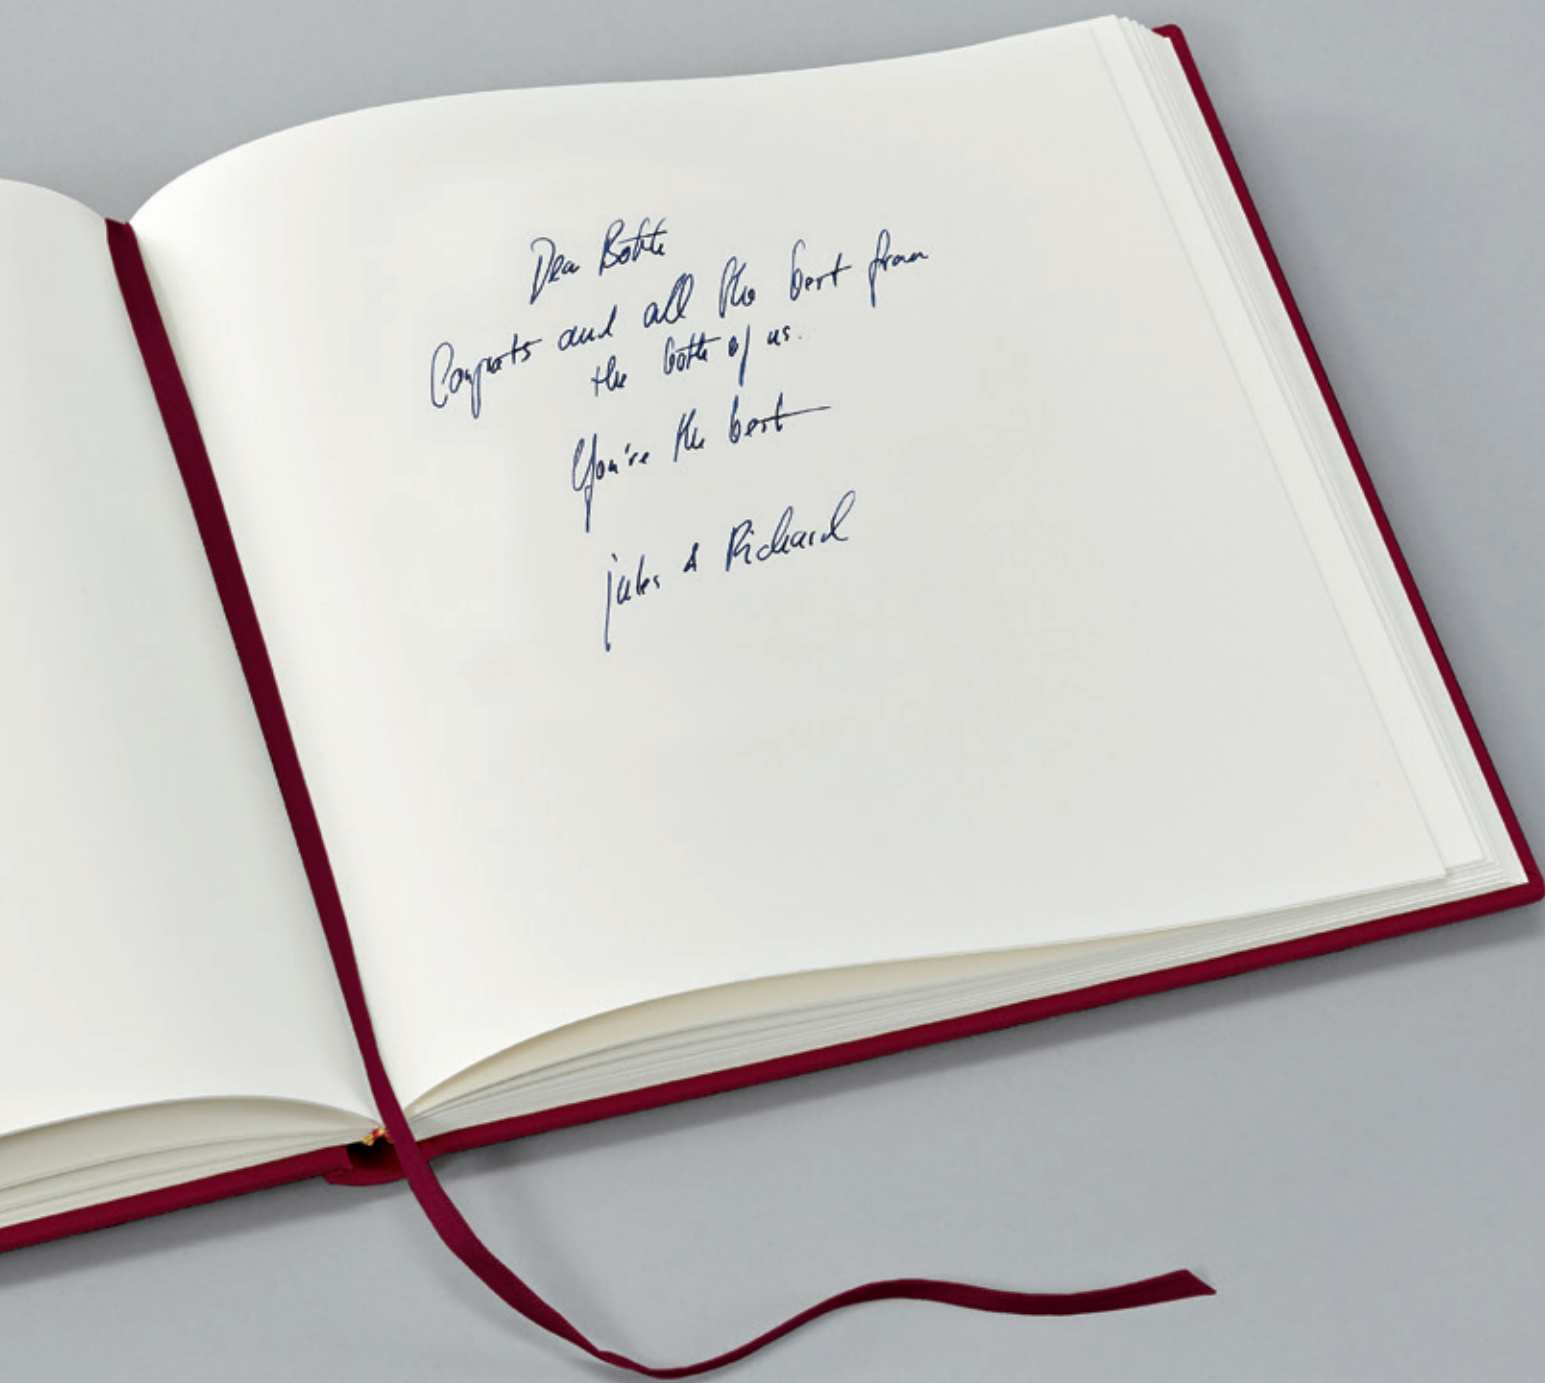 Dear
Congrats and all the best from
the both of us.
You're the best
jules & Richard